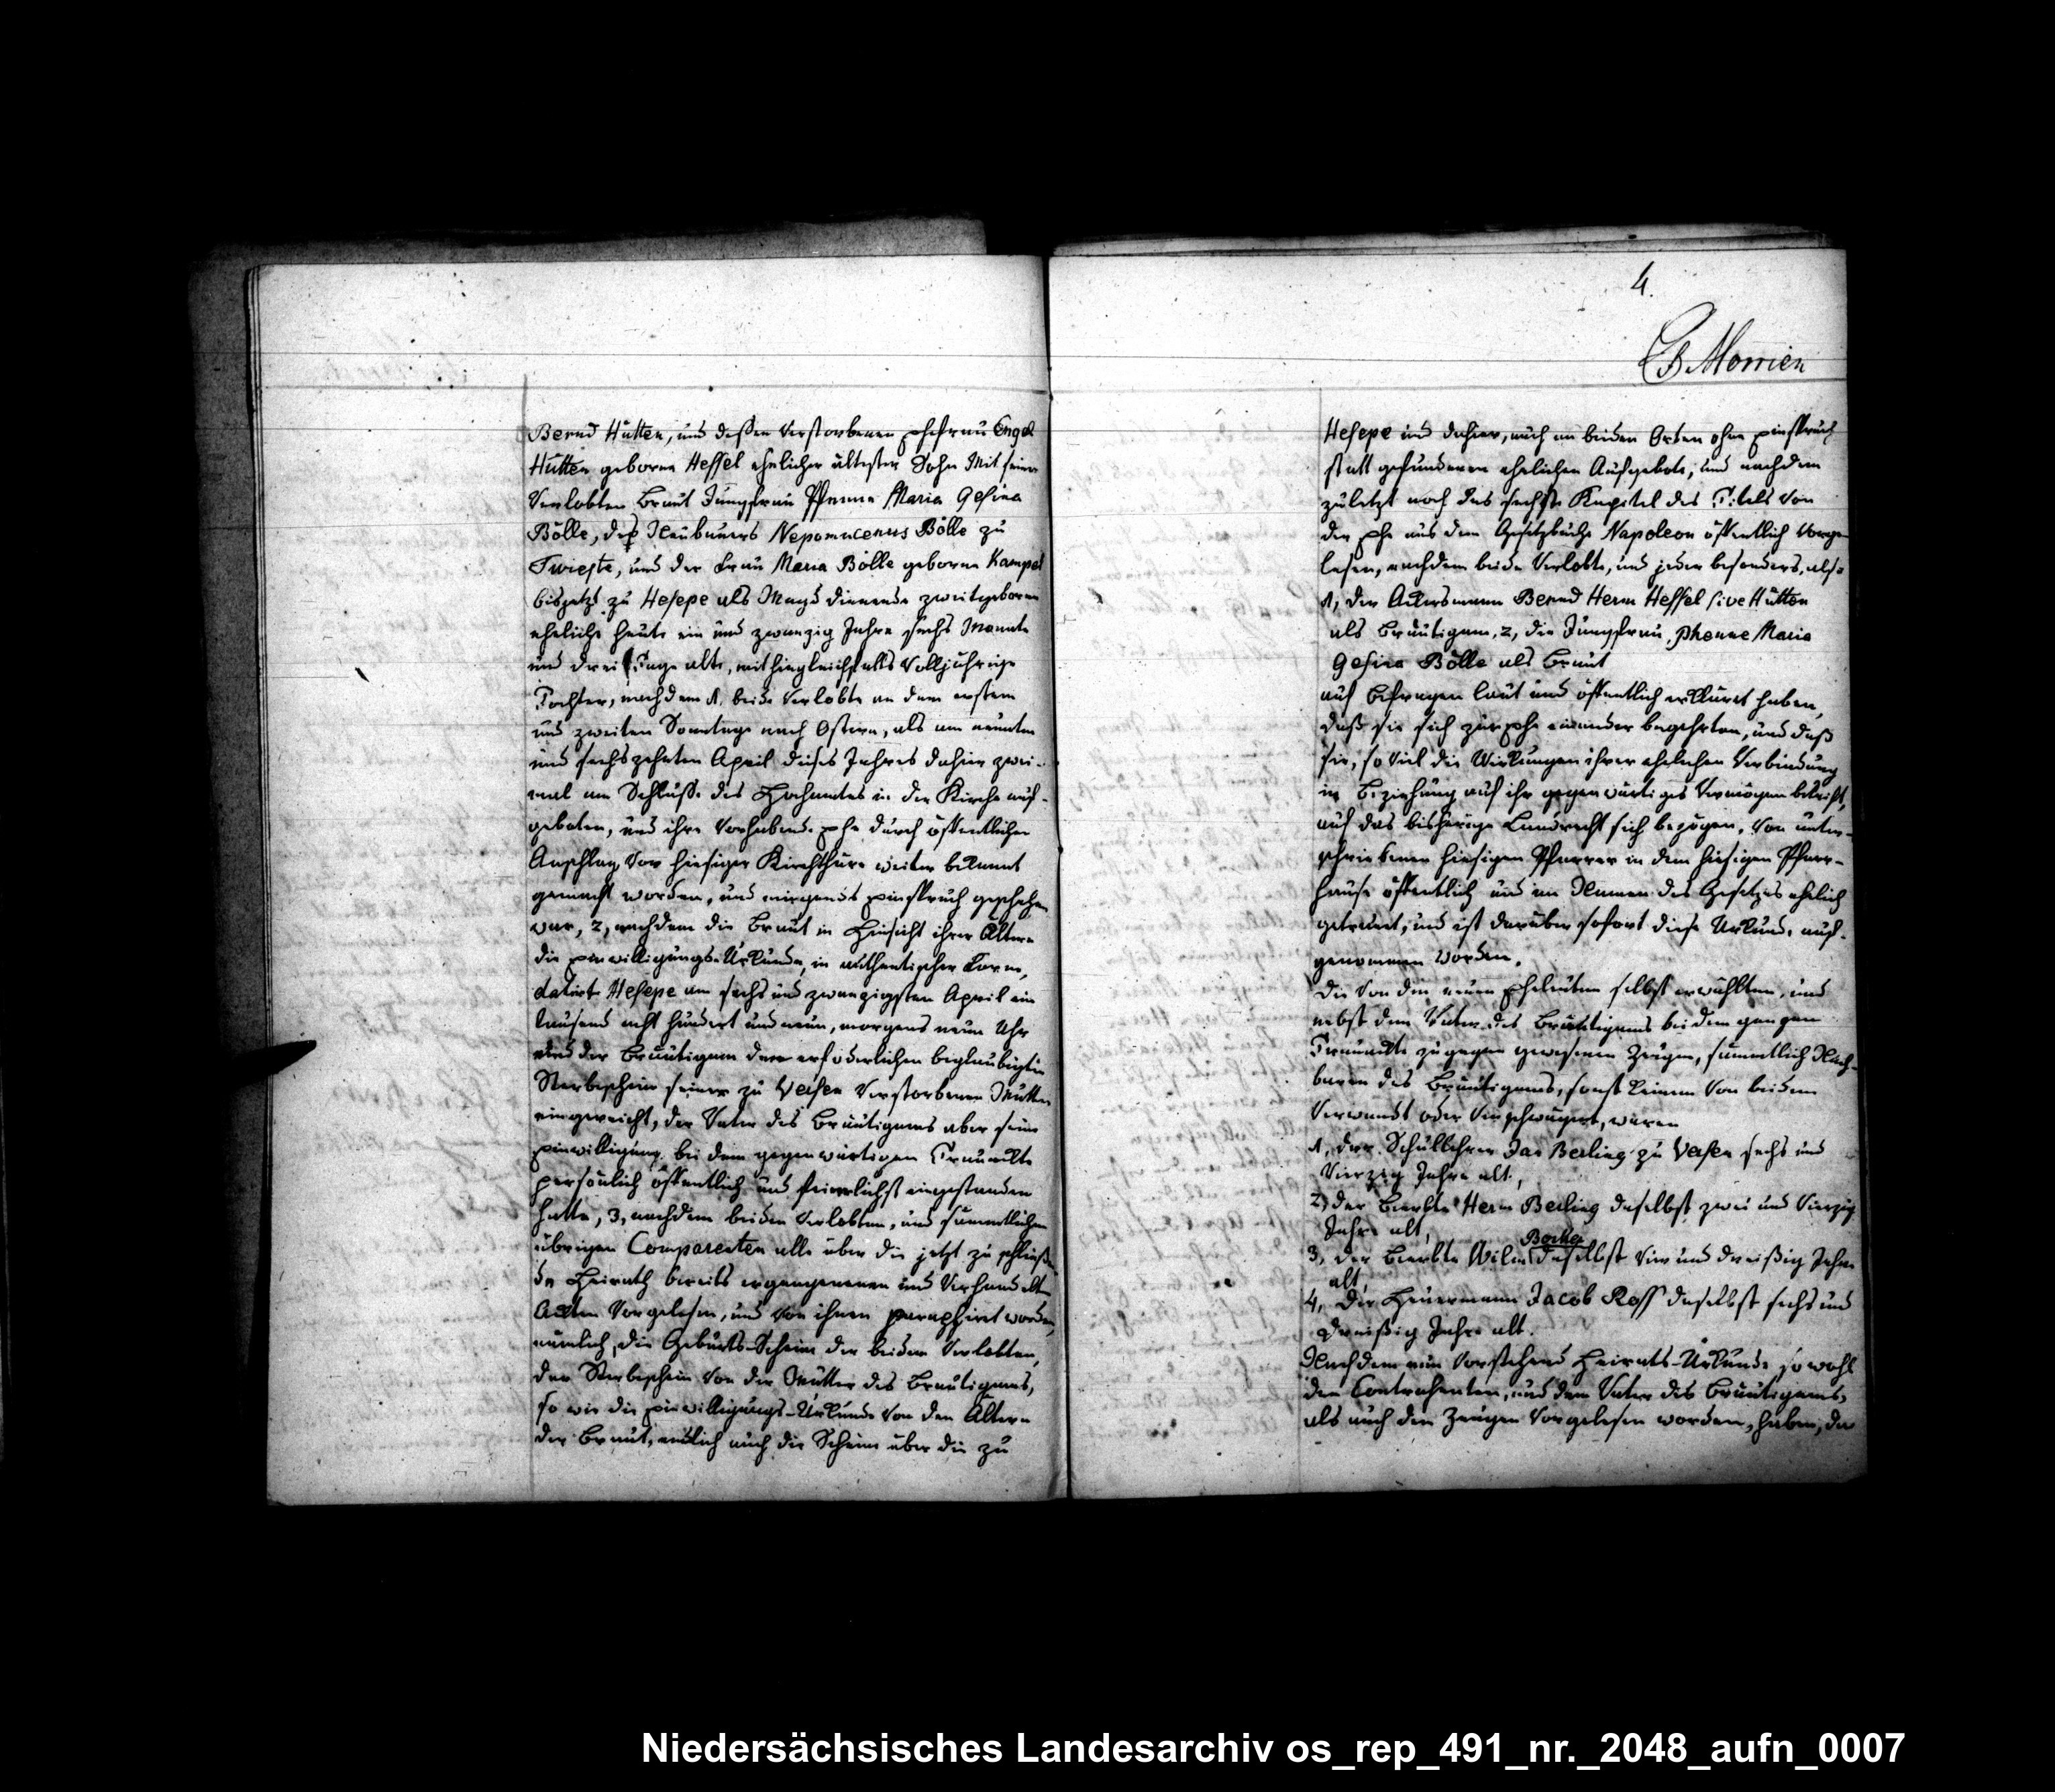 Bernd Hütten, und deßen verstorbenen Ehefrau Engel
Hütten geborne Hessel ehelicher ältester Sohn Mit seiner
Verlobten Braut Jungfrau Phenne Maria Gesina
Bölle, des Neubauers Nepomucenus Bölle zu
Twieste, und der Frau Maria Bölle geborne Kampel
bisjetzt zu Hesepe als Magd dienende zweitgeborne
eheliche heute ein und zwanzig Jahre sechs Monate
und drei Tage alte, mithin gleichfalls volljährige
Tochter, nachdem 1, beide Verlobte an dem ersten
und zweiten Sonntage nach Ostern, als am neunten
und sechszehnten April dieses Jahres dahier zwei-
mal am Schluße des Hochamtes in der Kirche auf-
geboten, und ihre vorhabende Ehe durch öffentlichen
Anschlag vor hiesiger Kirchthüre weiter bekannt
gemacht worden, und nirgends Einspruch geschehen
war, 2, nachdem die Braut in Hinsicht ihrer Ältern
die Einwilligungs-Urkunde, in authentischer Form,
datirt Hesepe am sechs und zwanzigsten April ein
tausend acht hundert und neun, morgens neun Uhr
und der Bräutigam den erfoderlichen beglaubigten
Sterbeschein seiner zu Versen verstorbenen Mutter
eingereicht, der Vater des Bräutigams aber seine
Einwilligung bei dem gegenwärtigen Trauackte
persönlich öffentlich und feierlichst eingestanden
hatte, 3, nachdem beiden Verlobten, und sämmtlichen
übrigen Comparenten alle über die jetzt zu schließen-
de Heirath bereits ergangenen und verhandelten
Ackten vorgelesen, und von ihnen paraphirt worden,
nämlich, die Geburts-Scheine der beiden Verlobten,
der Sterbeschein von der Mutter des Bräutigams,
so wie die Einwilligungs-Urkunde von den Ältern
der Braut, endlich auch die Scheine über die zu
4.
B Morrien
Hesepe und dahier, auch an beiden Orten ohne Einspruch
statt gefundenen ehelichen Aufgebote, und nachdem
zuletzt noch das sechste Kapitel des Titels von
der Ehe aus dem Gesetzbuche Napoleon öffentlich vorge-
lesen, nachdem beide Verlobte, und jeder besonders, also
1, der Ackersmann Bernd Herm Hessel sive Hütten
als Bräutigam, 2, die Jungfrau Phenne Maria
Gesina Bölle als Braut
auf Befragen laut und öffentlich erkläret haben,
daß sie sich zur Ehe einander begehrten, und daß
sie, so viel die Wirkungen ihrer ehelichen Verbindung
in Beziehung auf ihr gegenwärtiges Vermögen betrift,
auf das bisherige Landrecht sich bezögen, von unter-
schriebenen hiesigen Pfarrer in dem hiesigen Pfarr-
hause öffentlich und im Namen des Gesetzes ehelich
getrauet, und ist darüber sofort diese Urkunde auf-
genommen worden.
Die von den neuen Eheleuten selbst erwählten, und
nebst dem Vater des Bräutigams bei dem ganzen
Trauackte zugegen gewesenen Zeugen, sämmtlich Nach-
baren des Bräutigams, sonst keinem von beiden
verwandt oder verschwägert, waren
1, der Schullehrer Jan Berling zu Versen sechs und
vierzig Jahre alt,
2, der Beerbte Herm Berling daselbst zwei und vierzig
Jahre alt,
3, der Beerbte Wilm Borker daselbst vier und dreißig Jahre
alt,
4, der Heuermann Jacob Roff daselbst sechs und
dreißig Jahre alt.
Nachdem nun vorstehend Heirats-Urkunde so wohl
den Contrahenten, und dem Vater des Bräutigams,
als auch den Zeugen vorgelesen worden, haben, da
Niedersächsisches Landesarchiv os_rep_491_nr._2048_aufn_0007